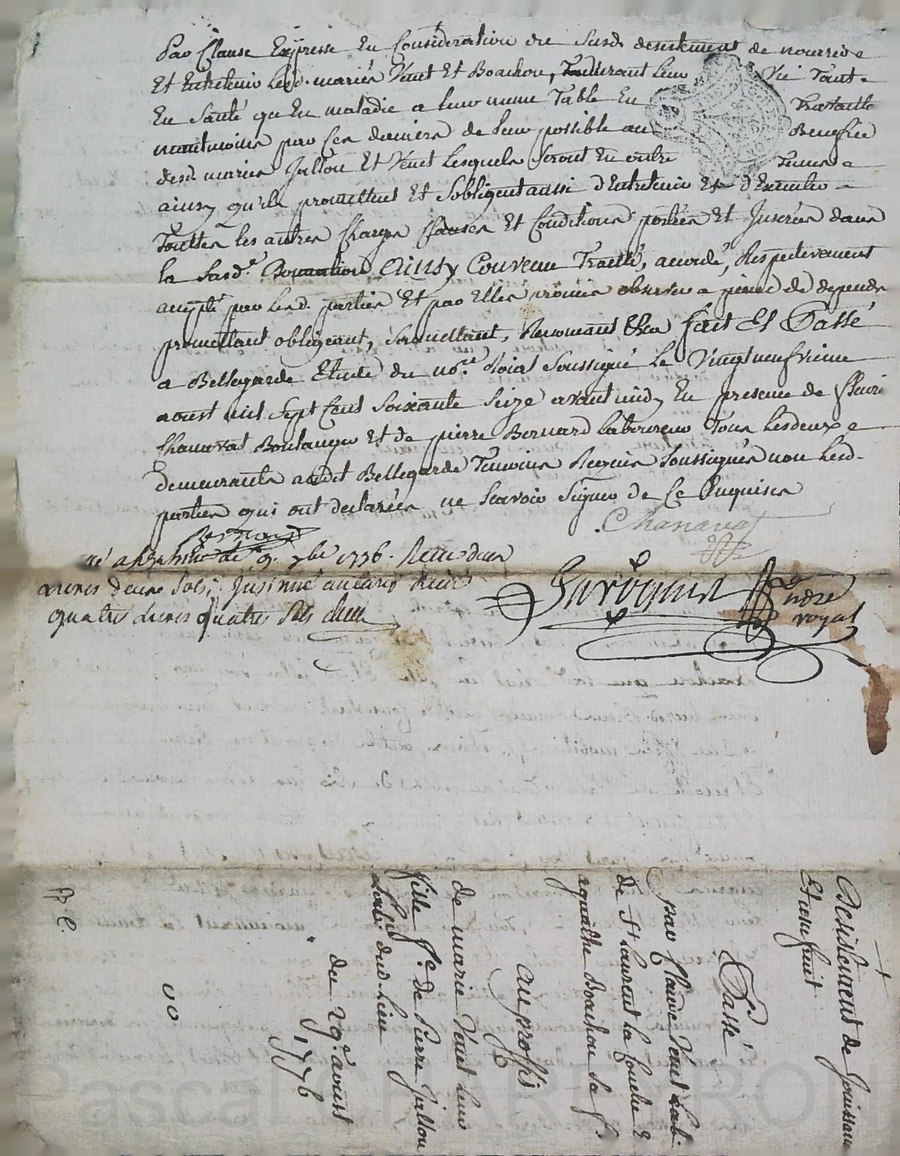 Par Clause Expresse En Consideration du Susd. desistement de nourrir
Et Entretenir lesd. mariés Venet Et Boachon, durant leur Vie Tant
En Santé qu'En maladie a leur meme Table En Travaillt
neantmoins par Ces derniers de leur possible au Benefice
desd. mariés Jallon Et Venet lesquels Seront En outre Tenus
ainsy qu'ils promettent Et Sobligent aussi d'Entretenir Et d'Executer
Touttes les autres Charges Clauses Et Conditions portées Et Inserées dans
la Susd.e Donnation Ainsy Convenu Traitté, accordé, Respectivement
accepté par lesd. parties Et par Elles promis observer a peine de depends
promettant obligeant, Soumettant, Renonceant &ca fait Et Passé
a Bellegarde Etude du no.re Roial Soussigné le Vingtneufvieme
aoust mil Sept Cent Soixante Seize avant midy En presence de fleuri
Chanavat Boulanger Et de pierre Bernard laboureur Tous Lesdeux
demeurants audit Bellegarde Temoins Requis Soussignés non lesd.
parties qui ont declarées ne Scavoir Signer de Ce Enquises
Bernard
Chanavat
le 9. 7bre 1776. Receu dix
Sols; Insinué au tarif Receu
quatre livres quatre Sols
notre
royal
Desistement de Jouissance
Et usufruit
Passé
par Claude Venet lab.
de St Laurent la Couche &
Boachon sa f.
au proffit
de marie Venet leur
fille f.e de Pierre Jallon
Lab. dud. Lieu
du 29e aoust
1776